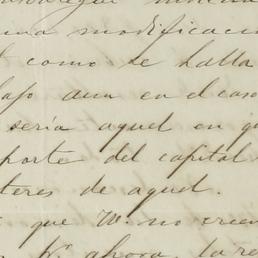 una modificacion
como se halla
bajo aun en el caso
seria aquel en q
porte del capital
teres de aquel.
que V. no cree
ahora, la re